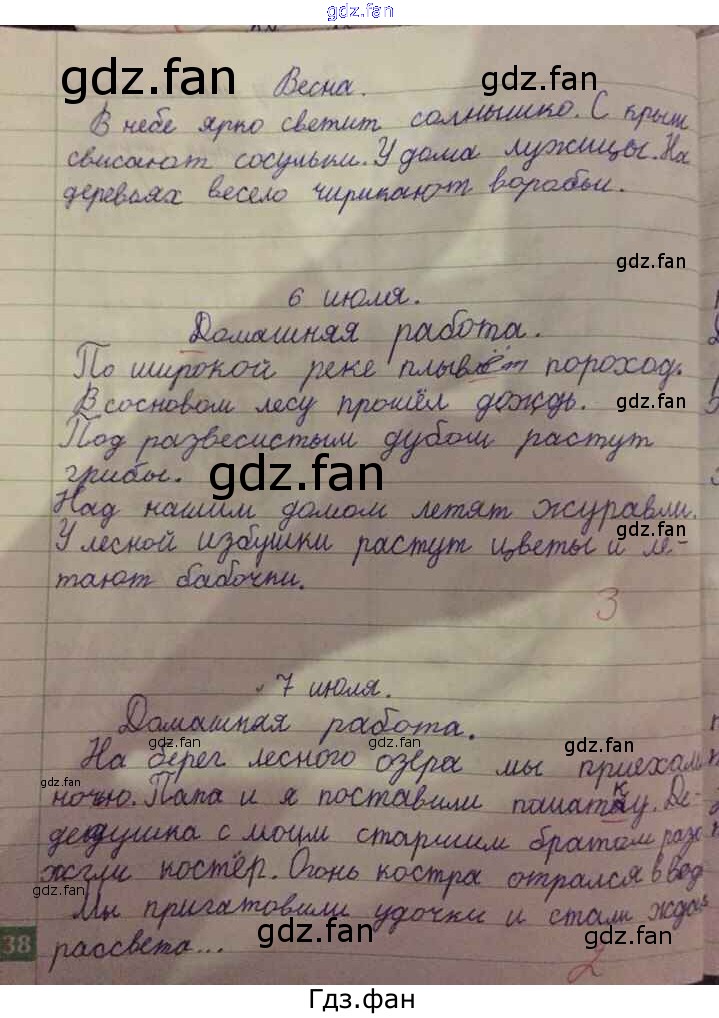 gdz.fan
gdz.fan
Весна.
gdz.fan
В небе ярко светит солнышко. С крыш
свисают сосульки. У дома лужицы. На
деревьях весело чирикают воробьи.
gdz.fan
6 июля.
Домашняя работа.
По широкой реке плывёт пороход.
В сосновом лесу прошёл дождь.
gdz.fan
Под развесистым дубом растут
грибы.
gdz.fan
Над нашим домом летят журавли.
gdz.fan
У лесной избушки растут цветы и ле-
тают бабочки.
3
7 июля.
Домашняя работа.
gdz.fan
gdz.fan
gdz.fan
На берег лесного озера мы приехали
gdz.fan
ночью. Папа и я поставили палатку. Де-
дедушка с моим старшим братом раз
жгли костёр. Огонь костра отрался в вод
gdz.fan
gdz.fan
Мы пригатовили удочки и стали ждать
38
рассвета...
gdz.fan
gdz.fan
2
Гдз.фан